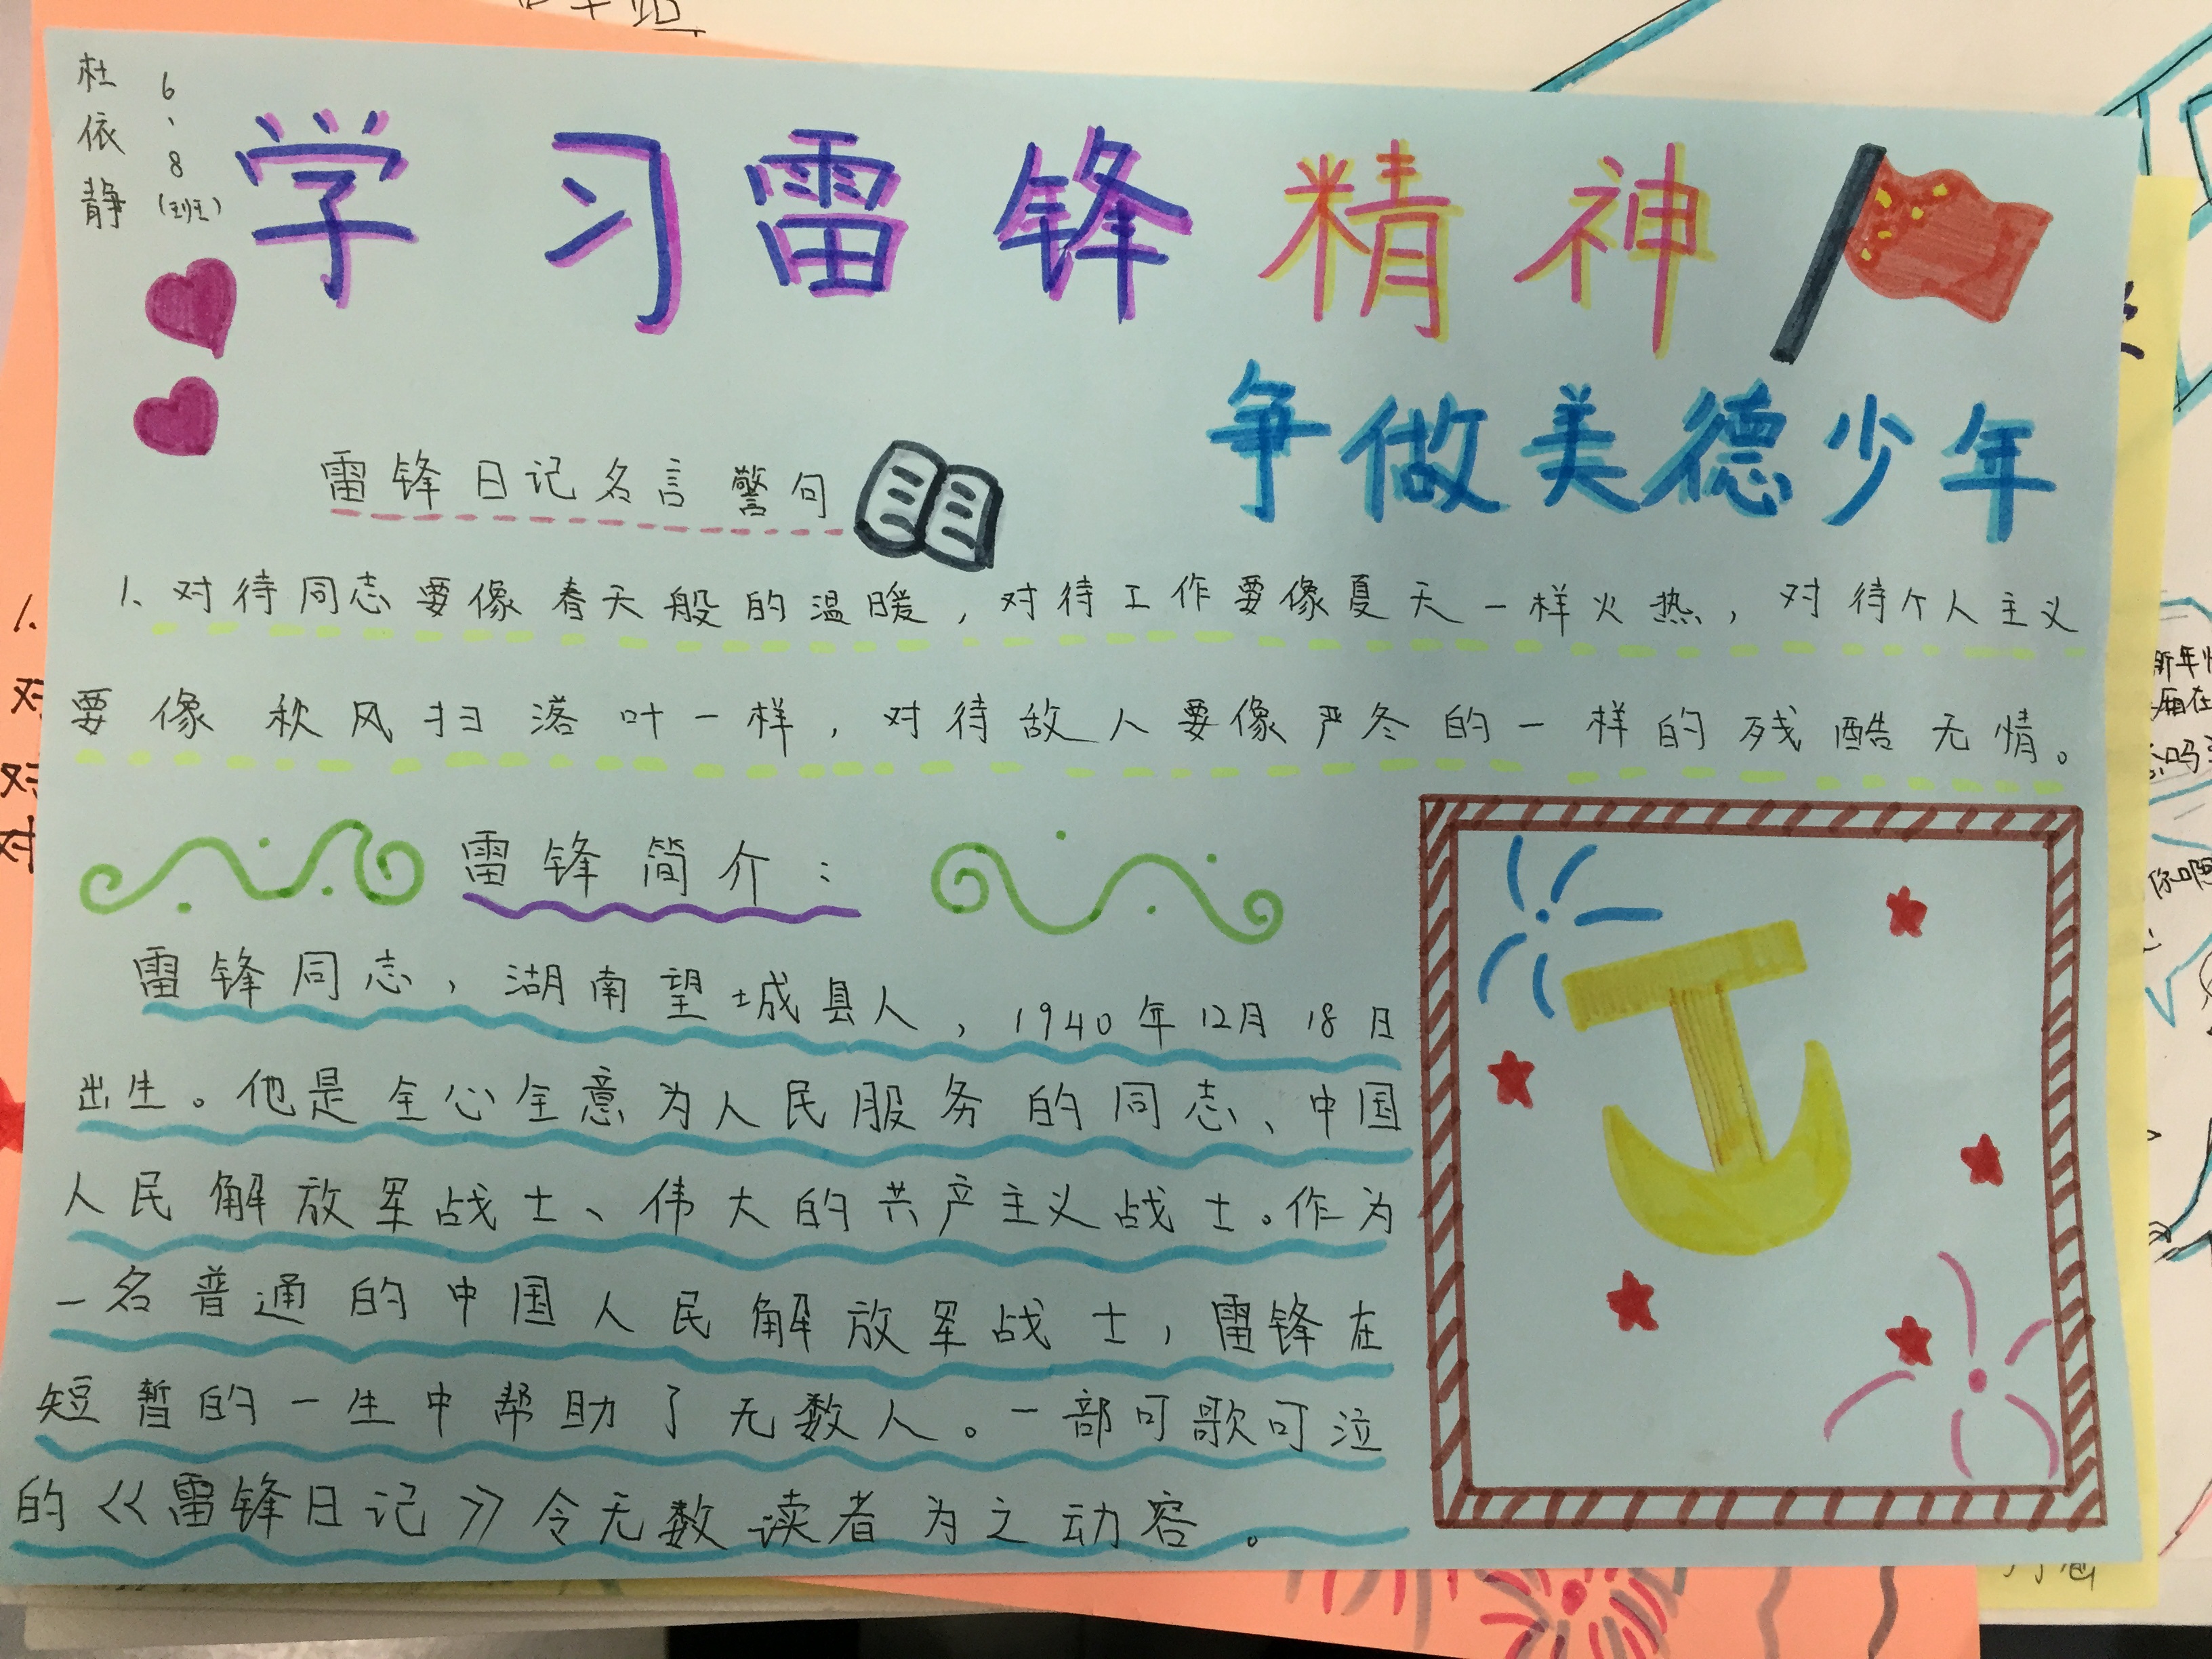 杜依静
6、8(班)
学习雷锋精神
争做美德少年
雷锋日记名言警句
1、对待同志要像春天般的温暖，对待工作要像夏天一样火热，对待个人主义
要像秋风扫落叶一样，对待敌人要像严冬的一样的残酷无情。
雷锋简介：
雷锋同志，湖南望城县人，1940年12月18日
出生。他是全心全意为人民服务的同志、中国
人民解放军战士、伟大的共产主义战士。作为
一名普通的中国人民解放军战士，雷锋在
短暂的一生中帮助了无数人。一部可歌可泣
的《雷锋日记》令无数读者为之动容。